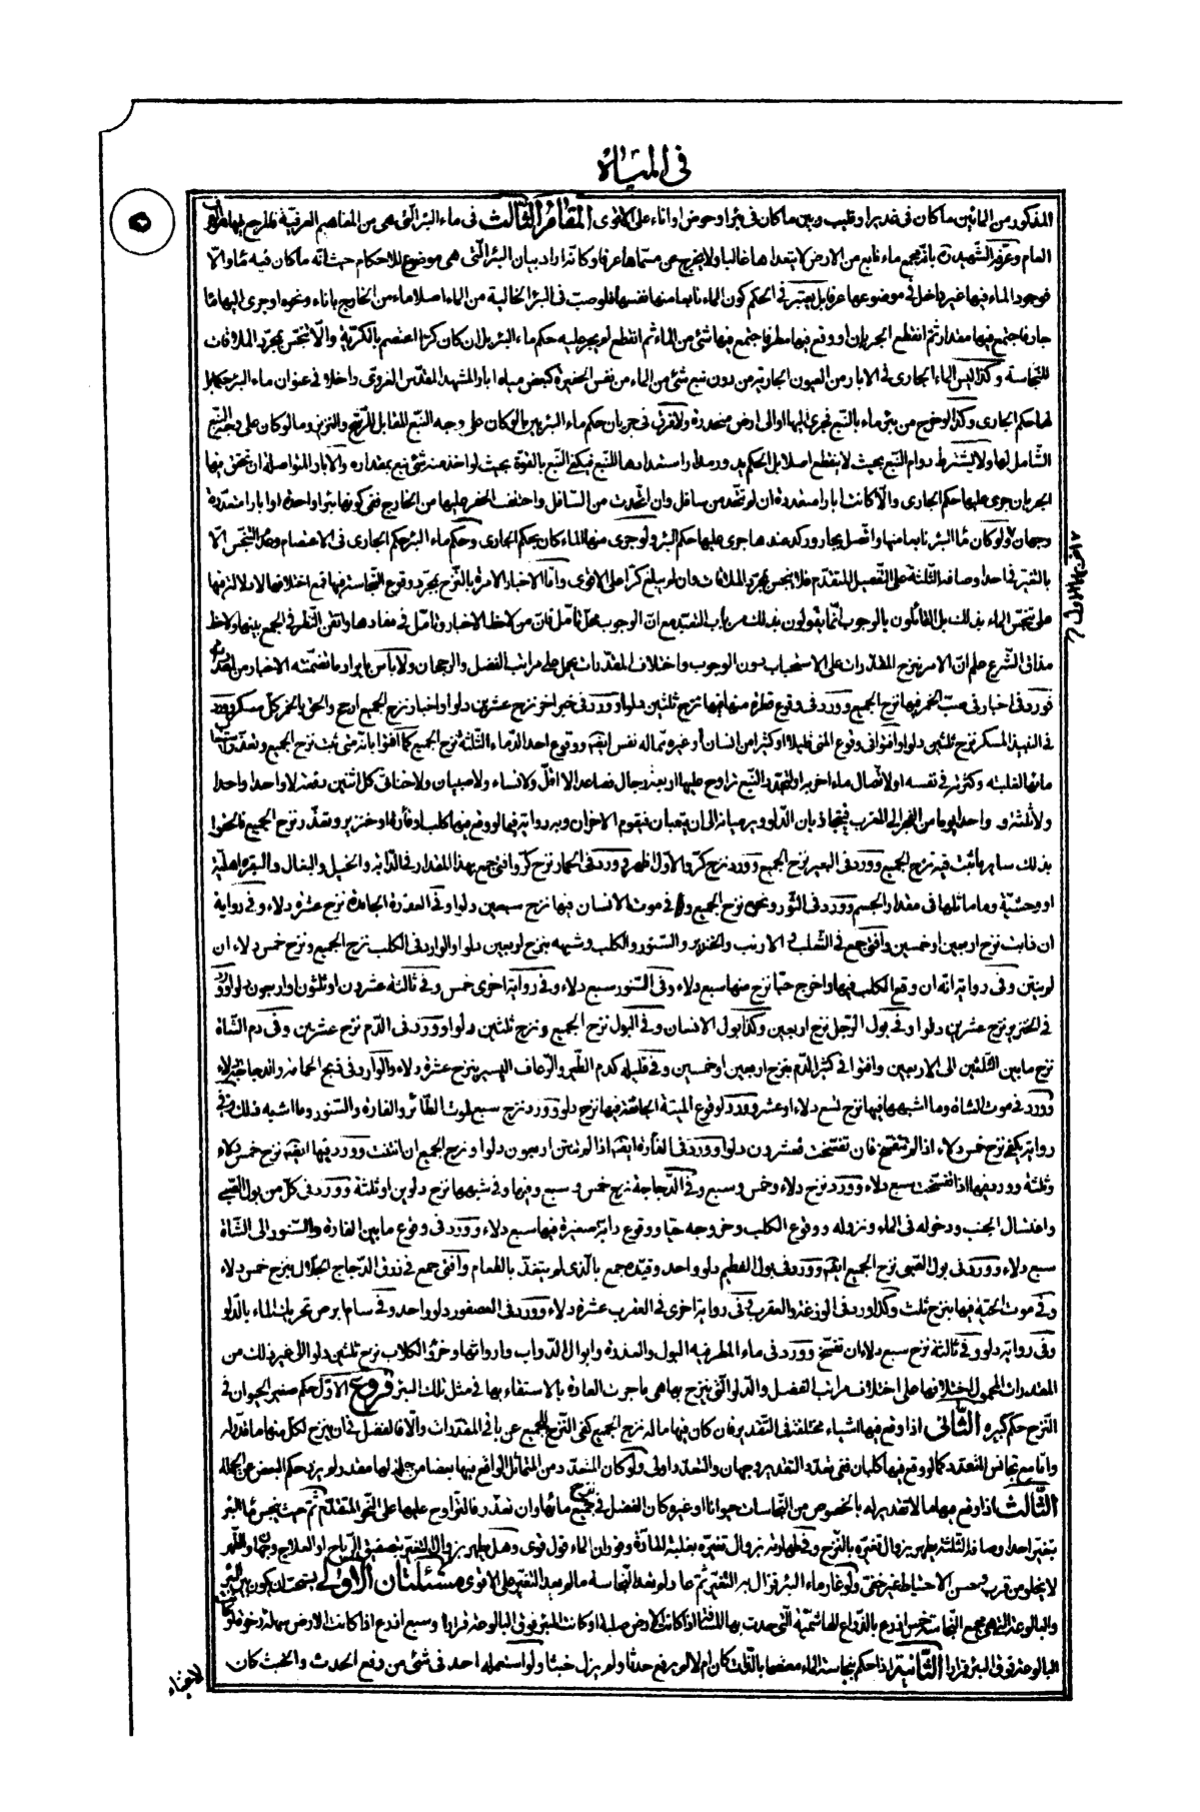 في المياه
المذكور من المائين ما كان في غدير او قليب وبين ما كان في بئر او حوض او اناء على الاقوى المقام الثالث في ماء البئر التي هي من المفاهيم العرفية فلا رجع فيها الى
العام وعرفه الشهيد ره بانه مجمع ماء نابع من الارض لا يتعداها غالبا ولا يخرج عن مسماها عرفا وكانه اراد بيان البئر التي هي موضوع للاحكام حيث انه ما كان فيه ماء والا
فوجود الماء فيها غير داخل في موضوعها عرفا بل يعتبر في الحكم كون الماء نابعا منها نفسها فلو صب في البئر الخالية من الماء اصلا ماء من الخارج باناء ونحوه او جرى اليها ماء
جار فاجتمع فيها مقدار ثم انقطع الجريان او وقع فيها مطر فاجتمع فيها شئ من الماء ثم انقطع لم يجر عليه حكم ماء البئر بل ان كان كرا اعتصم بالكرية والا تنجس بمجرد الملاقات
للنجاسة وكذا ليس الماء الجارى في الابار من العيون الجارية من دون نبع شئ من الماء من نفس الحفيرة كبعض مياه ابار المشهد المقدس الغروى داخلا في عنوان ماء البئر حكما بل
لها حكم الجارى وكذا لو خرج من بئر ماء بالنبع فجرى اليها او الى ارض منحدرة ولا فرق في جريان حكم ماء البئر بين ما لو كان على وجه النبع المقابل للرشح والنز وما لو كان على وجه الرشح
الشامل لها ولا يشترط دوام النبع بحيث لا ينقطع اصلا بل الحكم يدور مدار استعدادها للنبع فيكفى النبع بالقوة بحيث لو اخذ منه شئ نبع بمقداره والابار المتواصلة ان تحقق فيها
الجريان جرى عليها حكم الجارى والا كانت ابارا متعددة ان لم تتحد من سافل وان اتحدت من السافل واختلف الحفر عليها من الخارج ففى كونها بئرا واحدة او ابارا متعددة
وجهان ولو كان ماء البئر نابعا منها واتصل بجار وركد عندها جرى عليها حكم البئر ولو جرى منها الماء كان بحكم الجارى وحكم ماء البئر حكم الجارى في الاعتصام وعدم التنجس الا
بالتغير في احد اوصافه الثلثة على التفصيل المتقدم فلا ينجس بمجرد الملاقات وان لم يبلغ كرا على الاقوى واما الاخبار الامرة بالنزح بمجرد وقوع النجاسة فيها فمع اختلافها لا دلالة فيها
على تنجس الماء بذلك بل القائلون بالوجوب انما يقولون بذلك من باب التعبد مع ان الوجوب محل تامل فان من لاحظ الاخبار وتامل في مفادها واتقن النظر في الجمع بينها ولاحظ
مذاق الشرع علم ان الامر بنزح المقدرات على الاستحباب دون الوجوب واختلاف المقدرات يحمل على مراتب الفضل والرجحان ولا بأس بايراد ما تضمنته الاخبار من
فورد في اخبار في صب الخمر فيها نزح الجميع وورد في وقوع قطرة منها فيها نزح ثلثين دلوا وورد في خبر اخر نزح عشرين دلوا واخبار نزح الجميع ارجح والحق بالخمر كل مسكر وورد
في النبيذ المسكر نزح ثلثين دلوا وافتوا في وقوع المنى قليلا او كثيرا من انسان او غيره مما له نفس ايضا ووقوع احد الدماء الثلثة نزح الجميع كما افتوا بانه متى ثبت نزح الجميع وتعذر
مائها لغلبته وكثرته في نفسه او لاتصال ماء اخر به او لتجدد النبع تراوح عليها اربعة رجال فصاعدا لا اقل ولا نساء ولا صبيان ولا خناثى كل اثنين دفعة لا واحدا واحدا
ولا ثلثة و واحدا يوما من الفجر الى المغرب فيتجاذبان الدلو ويرميانه الى ان يتعبان فيقوم الاخران وبه رواية فيما لو وقع فيها كلب او فأرة او خنزير وتعذر نزح الجميع فالحقوا
بذلك سائر ما يثبت فيه نزح الجميع وورد في البعير نزح الجميع وورد نزح كر والاول اظهر وورد في الحمار نزح كر وافتى جمع بهذا المقدار في الدابة والخيل والبغال والبقرة اهلية
او وحشية وما ماثلها في مقدار الجسم وورد في الثور ونحوه نزح الجميع و في موت الانسان فيها نزح سبعين دلوا وفى العذرة الجامدة نزح عشرة دلاء وفى رواية
ان ذابت نزح اربعين او خمسين وافتى جمع في الثعلب في الارنب والخنزير والسنور والكلب وشبهه بنزح اربعين دلوا والوارد في الكلب نزح الجميع ونزح خمس دلاء ان
لم يتن وفى رواية انه ان وقع الكلب فيها واخرج حيا نزح منها سبع دلاء وفى السنور سبع دلاء وفى رواية اخرى خمس وفى ثالثة عشرون او ثلثون او اربعون دلوا وورد
في الخنزير نزح عشرين دلوا وفى بول الرجل نزح اربعين وكذا بول الانسان وفى البول نزح الجميع ونزح ثلثين دلوا وورد في الدم نزح عشرين وفى دم الشاة
نزح ما بين الثلثين الى الاربعين وافتوا في كثير الدم بنزح اربعين او خمسين وفى قليله كدم الطير والرعاف اليسير بنزح عشرة دلاء والوارد في ذبح الحمامة والدجاجة دلاء
وورد في موت الشاة وما اشبهها فيها نزح تسع دلاء او عشر وورد لوقوع الميتة الجائفة فيها نزح دلو وورد نزح سبع لموت الطائر والفارة والسنور وما اشبه ذلك وفى
رواية يكفى نزح خمس دلاء اذا لم تتفسخ فان تفسخت فعشرون دلوا وورد في الفارة ايضا اذا لم تنتن اربعون دلوا ونزح الجميع ان انتنت وورد فيها ايضا نزح خمس دلاء
وثلثة وورد فيها اذا تفسخت سبع دلاء وورد نزح دلاء وخمس وسبع وفى الدجاجة نزح خمس وسبع وفيها وفى شبهها نزح دلوين او ثلثة وورد في كل من بول الصبى
واغتسال الجنب ودخوله في الماء ونزوله ووقوع الكلب وخروجه حيا ووقوع دابة صغيرة فيها سبع دلاء وورد في وقوع ما بين الفارة والسنور الى الشاة
سبع دلاء وورد في بول الصبى نزح الجميع ايضا وورد في بول الفطيم دلو واحد وقيده جمع بالذى لم يتغذ بالطعام وافتى جمع في ذرق الدجاج الجلال بنزح خمس دلاء
وفى موت الحية فيها بنزح ثلث وكذا ورد في الوزغة والعقرب وفى رواية اخرى في العقرب عشرة دلاء وورد في العصفور دلو واحد وفى سام ابرص تحريك الماء بالدلو
وفى رواية دلو وفى ثالثة نزح سبع دلاء ان تفسخ وورد في ماء المطر فيه البول والعذرة وابوال الدواب وارواثها وخرؤ الكلاب نزح ثلثين دلوا الى غير ذلك من
المقدرات المحمول اختلافها على اختلاف مراتب الفضل والدلو التي ينزح بها هى ما جرت العادة بالاستقاء بها في مثل ذلك البئر فروع الاول حكم صغير الحيوان في
النزح حكم كبيره الثانى اذا وقع فيها اشياء مختلفة في التقدير فان كان فيها ما له نزح الجميع كفى النزح للجميع عن باقى المقدرات والا فالفضل في ان ينزح لكل منها ما قدر له
واما مع تجانس المتعدد كما لو وقع فيها كلبان ففى تعدد التقدير وجهان والتعدد اولى ولو كان المتعدد من المتماثل الواقع فيها بعضا من جملة لها مقدر لم يزد حكم البعض عن الجملة
الثالث اذا وقع فيها ما لا تقدير له بالخصوص من النجاسات حيوانا او غيره كان الفضل في نزح جميع مائها وان تعذر فالتراوح عليها على النحو المتقدم ثم حيث ينجس ماء البئر
بتغير احد اوصافه الثلثة يطهر بزوال تغيره بالنزح وفى طهارته بزوال تغيره بغلبة المادة وفوران الماء قول قوى وهل يطهر بزوال التغير بتصفيق الرياح او العلاج وجهان والطهر
لا يخلو من قرب وحسن الاحتياط غير خفى ولو غار ماء البئر فزال به التغير ثم عاد لم تعد النجاسة ما لم يعد التغير على الاقوى مسئلتان الاولى يستحب ان يكون بين البئر
والبالوعة التى هى مجمع النجاسة خمس اذرع بالذراع الهاشمية التى حدت بها المسافة اذا كانت الارض صلبة او كانت البئر فوق البالوعة قرارا وسبع اذرع اذا كانت الارض سهلة رخوة او كانت
البالوعة فوق البئر قرارا الثانية اذا حكم بنجاسة الماء معتصما بالذات كان ام لا لم يرفع حدثا ولم يزل خبثا ولو استعمله احد في شئ من رفع الحدث والخبث كان